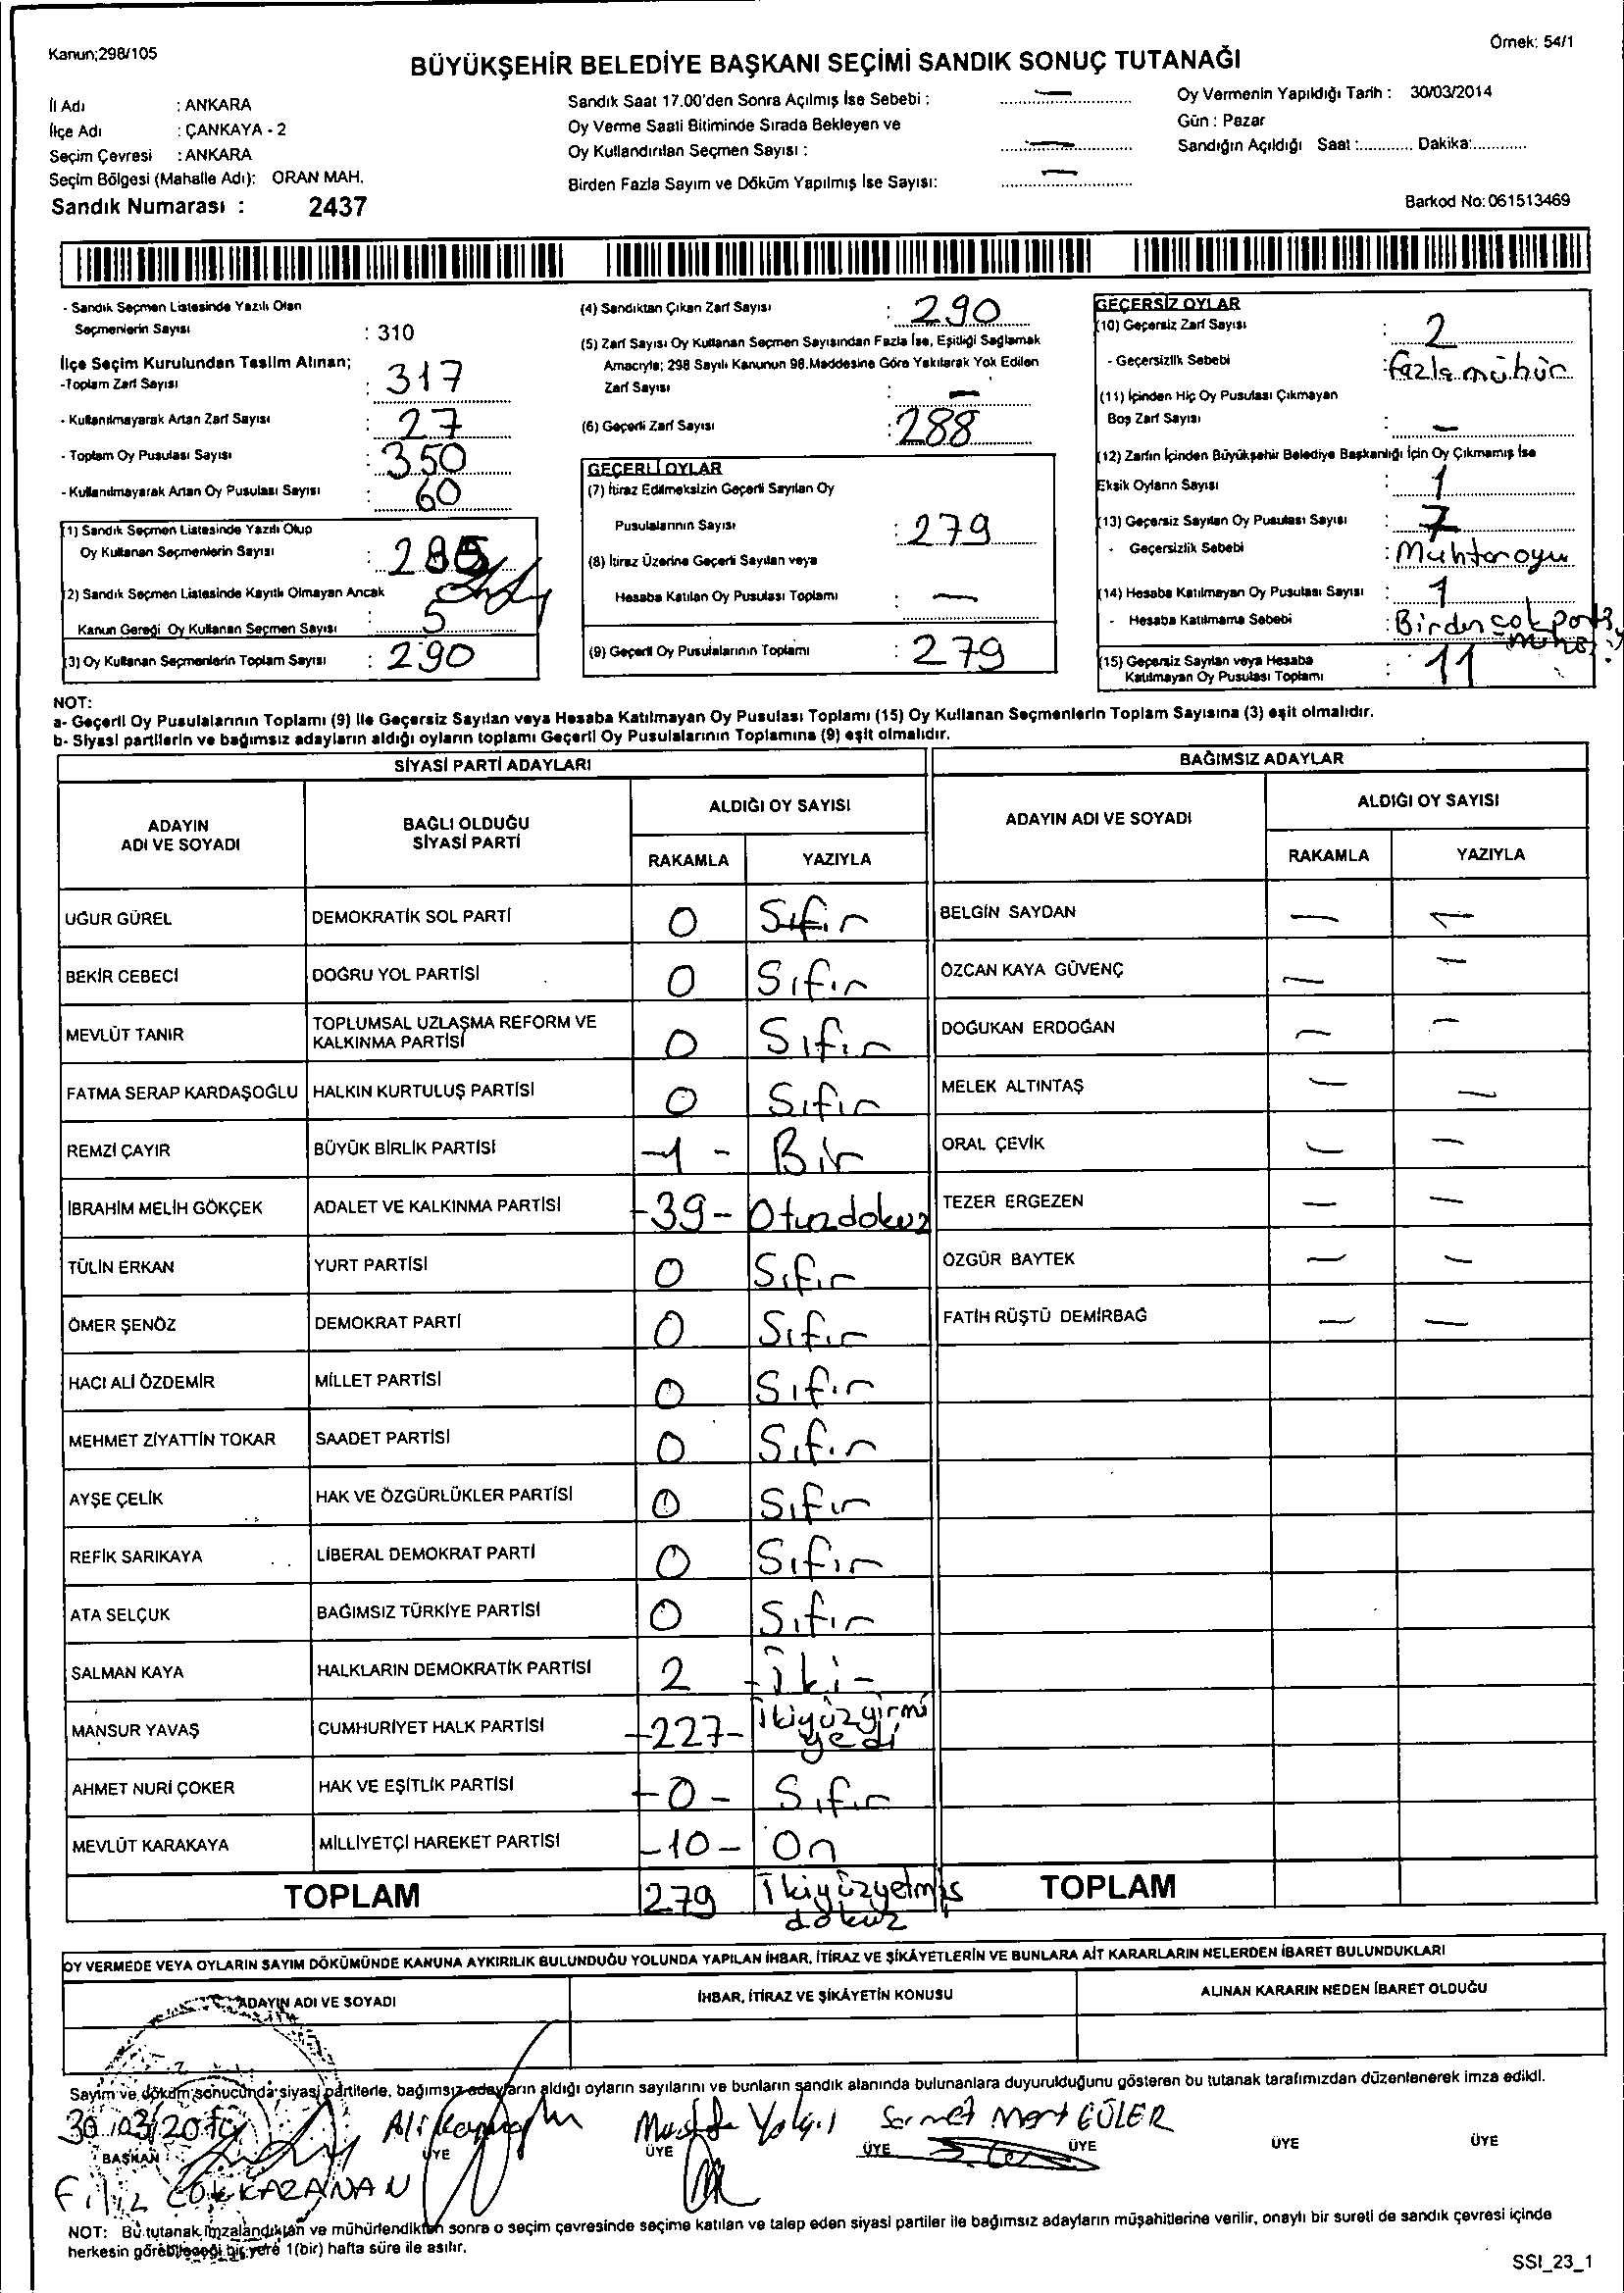 Kanun;298/105
Örnek: 54/1
BÜYÜKŞEHİR BELEDİYE BAŞKANI SEÇİMİ SANDIK SONUÇ TUTANAĞI
İl Adı : ANKARA
İlçe Adı : ÇANKAYA - 2
Seçim Çevresi : ANKARA
Seçim Bölgesi (Mahalle Adı): ORAN MAH.
Sandık Numarası : 2437
Sandık Saat 17.00'den Sonra Açılmış İse Sebebi : —
Oy Verme Saati Bitiminde Sırada Bekleyen ve
Oy Kullandırılan Seçmen Sayısı : —
Birden Fazla Sayım ve Döküm Yapılmış İse Sayısı: —
Oy Vermenin Yapıldığı Tarih : 30/03/2014
Gün : Pazar
Sandığın Açıldığı Saat :............ Dakika:............
Barkod No: 061513469
- Sandık Seçmen Listesinde Yazılı Olan
Seçmenlerin Sayısı : 310
İlçe Seçim Kurulundan Teslim Alınan;
-Toplam Zarf Sayısı : 317
- Kullanılmayarak Artan Zarf Sayısı : 27
- Toplam Oy Pusulası Sayısı : 350
- Kullanılmayarak Artan Oy Pusulası Sayısı : 60
(1) Sandık Seçmen Listesinde Yazılı Olup
Oy Kullanan Seçmenlerin Sayısı : 285
(2) Sandık Seçmen Listesinde Kayıtlı Olmayan Ancak
Kanun Gereği Oy Kullanan Seçmen Sayısı : 5
(3) Oy Kullanan Seçmenlerin Toplam Sayısı : 290
(4) Sandıktan Çıkan Zarf Sayısı : 290
(5) Zarf Sayısı Oy Kullanan Seçmen Sayısından Fazla İse, Eşitliği Sağlamak
Amacıyla; 298 Sayılı Kanunun 98.Maddesine Göre Yakılarak Yok Edilen
Zarf Sayısı : —
(6) Geçerli Zarf Sayısı : 288
GEÇERLİ OYLAR
(7) İtiraz Edilmeksizin Geçerli Sayılan Oy
Pusulalarının Sayısı : 279
(8) İtiraz Üzerine Geçerli Sayılan veya
Hesaba Katılan Oy Pusulası Toplamı : —
(9) Geçerli Oy Pusulalarının Toplamı : 279
GEÇERSİZ OYLAR
(10) Geçersiz Zarf Sayısı : 2
- Geçersizlik Sebebi : fazla mühür
(11) İçinden Hiç Oy Pusulası Çıkmayan
Boş Zarf Sayısı : —
(12) Zarfın İçinden Büyükşehir Belediye Başkanlığı İçin Oy Çıkmamış İse
Eksik Oyların Sayısı : 1
(13) Geçersiz Sayılan Oy Pusulası Sayısı : 7
- Geçersizlik Sebebi : Muhtar oyu
(14) Hesaba Katılmayan Oy Pusulası Sayısı : 1
- Hesaba Katılmama Sebebi : Birden çok
(15) Geçersiz Sayılan veya Hesaba
Katılmayan Oy Pusulası Toplamı : 11
NOT:
a- Geçerli Oy Pusulalarının Toplamı (9) ile Geçersiz Sayılan veya Hesaba Katılmayan Oy Pusulası Toplamı (15) Oy Kullanan Seçmenlerin Toplam Sayısına (3) eşit olmalıdır.
b- Siyasi partilerin ve bağımsız adayların aldığı oyların toplamı Geçerli Oy Pusulalarının Toplamına (9) eşit olmalıdır.
SİYASİ PARTİ ADAYLARI BAĞIMSIZ ADAYLAR
ADAYIN ADI VE SOYADI BAĞLI OLDUĞU SİYASİ PARTİ ALDIĞI OY SAYISI ADAYIN ADI VE SOYADI ALDIĞI OY SAYISI
RAKAMLA YAZIYLA RAKAMLA YAZIYLA
UĞUR GÜREL DEMOKRATİK SOL PARTİ 0 Sıfır BELGİN SAYDAN — —
BEKİR CEBECİ DOĞRU YOL PARTİSİ 0 Sıfır ÖZCAN KAYA GÜVENÇ — —
MEVLÜT TANIR TOPLUMSAL UZLAŞMA REFORM VE KALKINMA PARTİSİ 0 Sıfır DOĞUKAN ERDOĞAN — —
FATMA SERAP KARDAŞOĞLU HALKIN KURTULUŞ PARTİSİ 0 Sıfır MELEK ALTINTAŞ — —
REMZİ ÇAYIR BÜYÜK BİRLİK PARTİSİ -1- Bir ORAL ÇEVİK — —
İBRAHİM MELİH GÖKÇEK ADALET VE KALKINMA PARTİSİ -39- Otuzdokuz TEZER ERGEZEN — —
TÜLİN ERKAN YURT PARTİSİ 0 Sıfır ÖZGÜR BAYTEK — —
ÖMER ŞENÖZ DEMOKRAT PARTİ 0 Sıfır FATİH RÜŞTÜ DEMİRBAĞ — —
HACI ALİ ÖZDEMİR MİLLET PARTİSİ 0 Sıfır
MEHMET ZİYATTİN TOKAR SAADET PARTİSİ 0 Sıfır
AYŞE ÇELİK HAK VE ÖZGÜRLÜKLER PARTİSİ 0 Sıfır
REFİK SARIKAYA LİBERAL DEMOKRAT PARTİ 0 Sıfır
ATA SELÇUK BAĞIMSIZ TÜRKİYE PARTİSİ 0 Sıfır
SALMAN KAYA HALKLARIN DEMOKRATİK PARTİSİ 2 -iki-
MANSUR YAVAŞ CUMHURİYET HALK PARTİSİ -227- ikiyüzyirmi yedi
AHMET NURİ ÇOKER HAK VE EŞİTLİK PARTİSİ -0- Sıfır
MEVLÜT KARAKAYA MİLLİYETÇİ HAREKET PARTİSİ -10- On
TOPLAM 279 ikiyüzyetmiş dokuz TOPLAM
OY VERMEDE VEYA OYLARIN SAYIM DÖKÜMÜNDE KANUNA AYKIRILIK BULUNDUĞU YOLUNDA YAPILAN İHBAR, İTİRAZ VE ŞİKÂYETLERİN VE BUNLARA AİT KARARLARIN NELERDEN İBARET BULUNDUKLARI
ADAYIN ADI VE SOYADI İHBAR, İTİRAZ VE ŞİKÂYETİN KONUSU ALINAN KARARIN NEDEN İBARET OLDUĞU
Sayım ve döküm sonucunda siyasi partilerle, bağımsız adayların aldığı oyların sayılarını ve bunların sandık alanında bulunanlara duyurulduğunu gösteren bu tutanak tarafımızdan düzenlenerek imza edildi.
30/03/2014 Ali Mustafa Samet Mert GÜLER
BAŞKAN ÜYE ÜYE ÜYE ÜYE ÜYE ÜYE
Filiz
NOT: Bu tutanak imzalandıktan ve mühürlendikten sonra o seçim çevresinde seçime katılan ve talep eden siyasi partiler ile bağımsız adayların müşahitlerine verilir, onaylı bir sureti de sandık çevresi içinde
herkesin görebileceği bir yere 1(bir) hafta süre ile asılır.
SSI_23_1